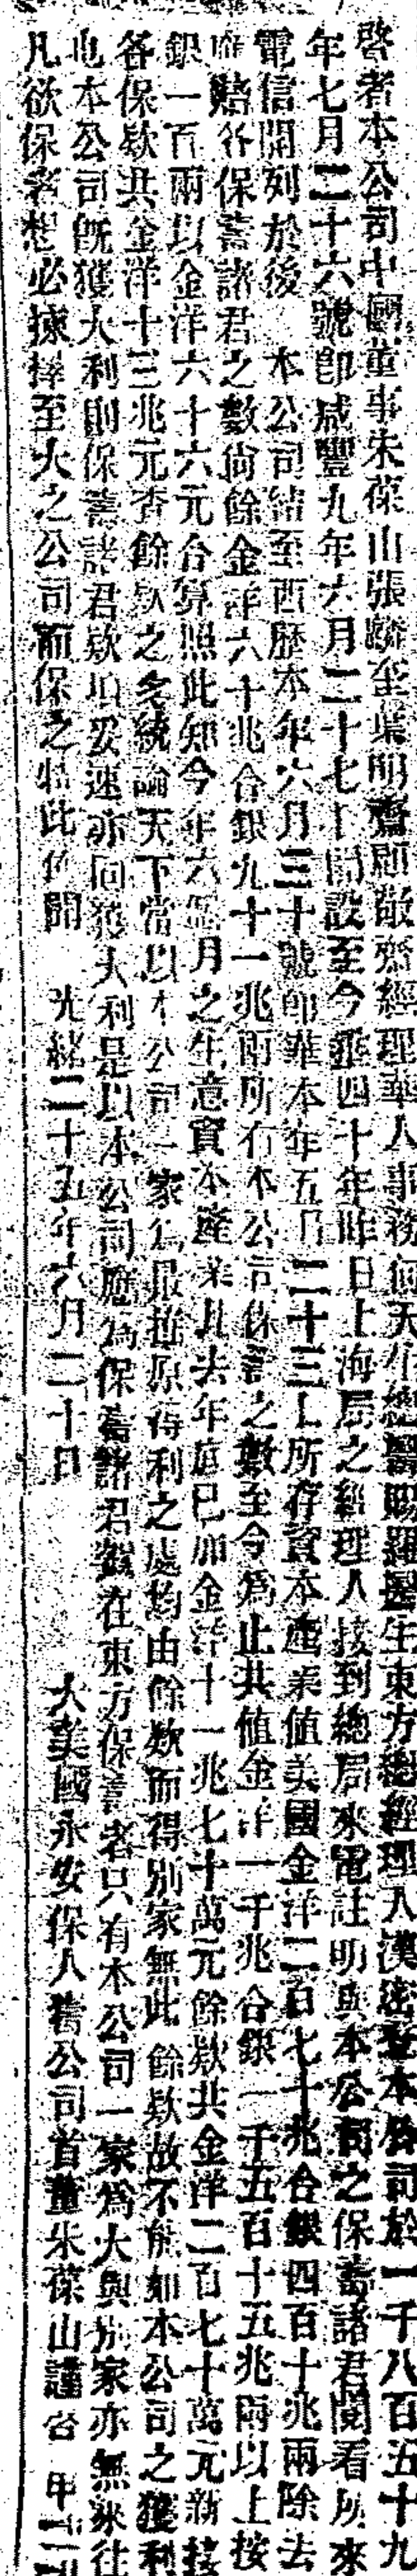 啓者本公司中國董事朱葆山張麟至葉明齋顧敬齋經理華人事務何天生總醫賜羅醫生東方總經理人漢密登本公司於一千八百五十九
年七月二十六號卽咸豐九年六月二十七日開設至今歷四十年昨日上海局之經理人接到總局來電註明與本公司之保壽諸君閱看所來
電信開列於後 本公司結至西歷本年六月三十號卽華本年五月二十三日所存資本產業值美國金洋二百七十兆合銀四百十兆兩除去
應賠各保壽諸君之數尙餘金洋六十兆合銀九十一兆兩所有本公司保壽之數至今爲止共值金洋一千兆合銀一千五百十五兆兩以上按
銀一百兩以金洋六十六元合算照此知今年六個月之生意資本產業比去年底已加金洋十一兆七十萬元餘欵共金洋二百七十萬元新接
各保欵共金洋十三兆元查餘欵之多統論天下當以本公司一家爲最推原得利之處均由餘欵而得別家無此餘欵故不能如本公司之獲利
也本公司旣獲大利則保壽諸君欵項妥速亦同獲大利是以本公司應爲保壽諸君 在東方保壽者只有本公司一家爲大與別家亦無來往
凡欲保者想必揀擇至大之公司而保之特此佈聞 光緖二十五年六月二十日 大美國永安保人壽公司首董朱葆山謹啓